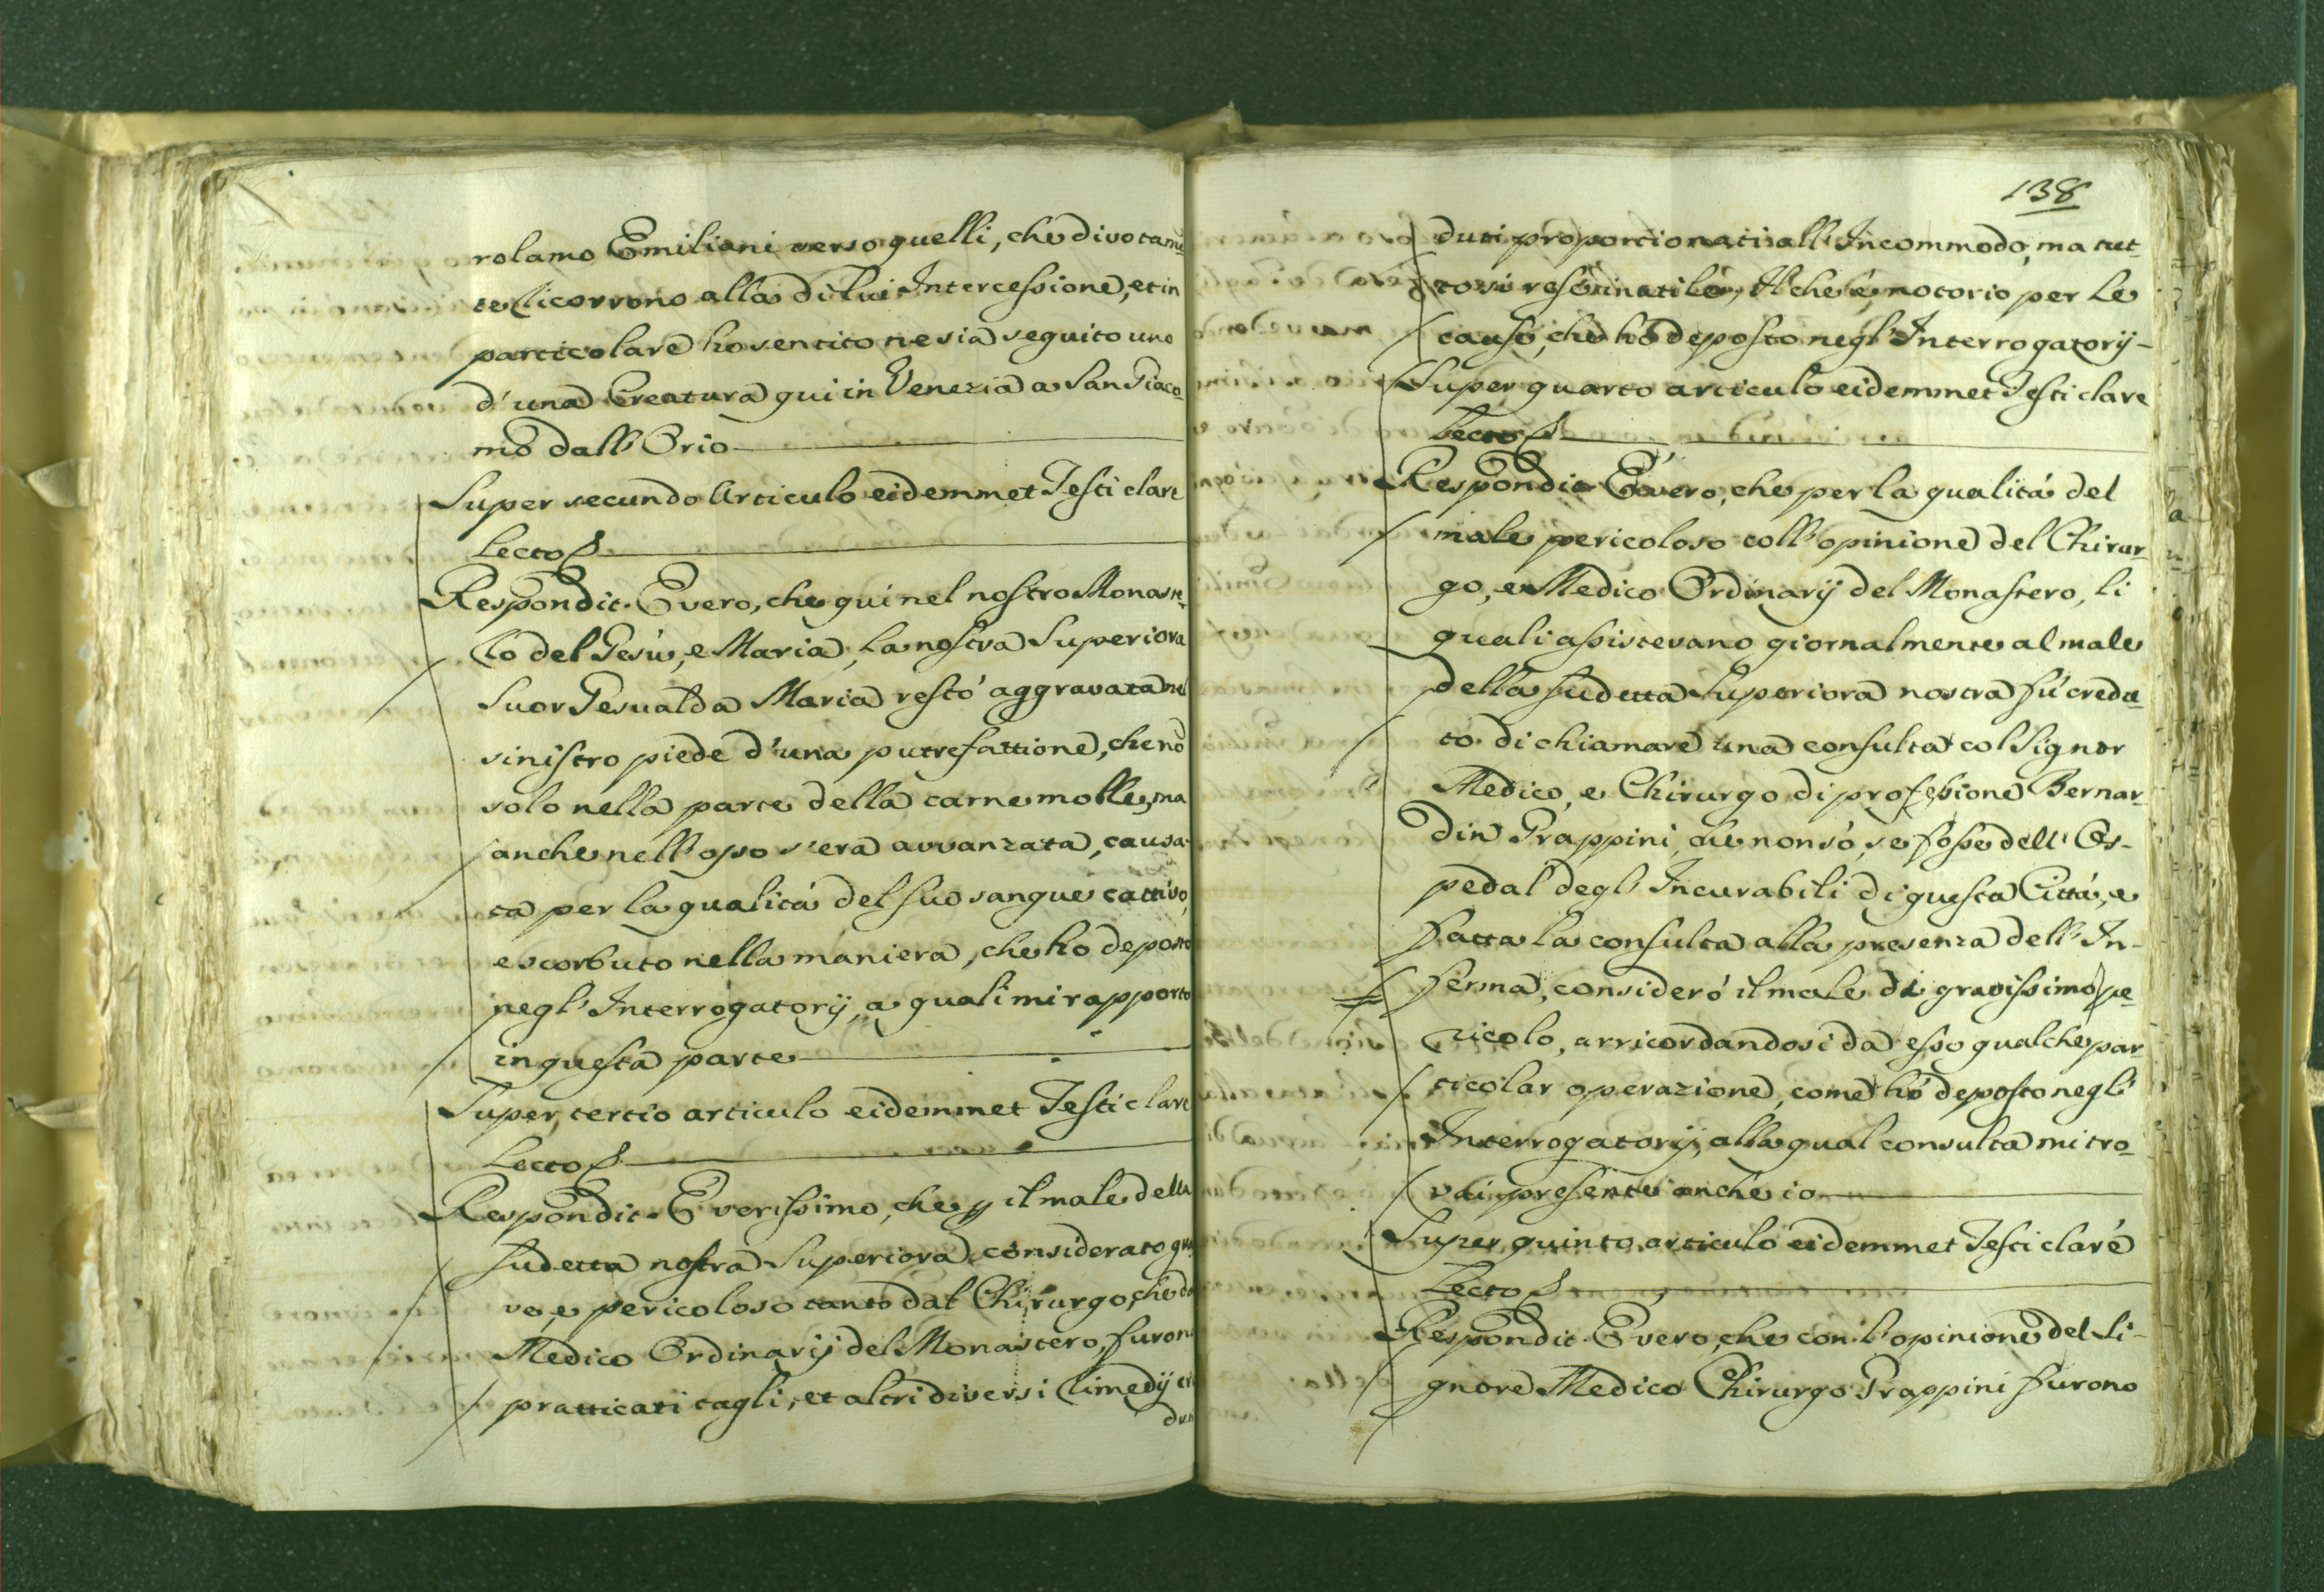 rolamo Emiliani verso quelli, che divotamẽ
te ricorrono alla di lui Intercessione, et in
particolare ho sentito ne sia seguito uno
d'una Creatura qui in Venezia a San Giaco-
mo dall'Orio
Super secundo Articulo eidemmet Testi clare
Lecto
Respondit. È vero, che qui nel nostro Monaste-
ro del Gesù, e Maria, la nostra Superiora
Suor Gesualda Maria restò aggravata nel
sinistro piede d'una putrefattione, che nõ
solo nella parte della carne molle, ma
anche nell'osso s'era avvanzata, causa-
ta per la qualità del suo sangue cattivo,
e scorbuto nella maniera, che ho deposto
negl'Interrogatorij, a quali mi rapporto
in questa parte
Super tertio articulo eidemmet Testi clare
Lecto
Respondit. È verissimo, che ꝑ il male della
sudetta nostra Superiora considerato gra
ve, e pericoloso tanto dal Chirurgo, che da
Medico Ordinarij del Monastero, furono
pratticati tagli, et altri diversi rimedij cre
duti
138
duti proporzionati all'Incommodo, ma tut-
to si rese inutile, Il che è notorio per le
cause, che hò deposto negl'Interrogatorij
Super quarto articulo eidemmet Testi clare
Lecto
Respondit È vero, che per la qualità del
male pericoloso coll'opinione del Chirur-
go, e Medico Ordinarij del Monastero, li
quali assistevano giornalmente al male
della sudetta Superiora nostra fù credu-
to di chiamare una consulta col Signor
Medico, e Chirurgo di professione Bernar-
din Grappini, che non sò, se fosse dell'Os-
pedal degl'Incurabili di questa Città, e
fatta la consulta alla presenza dell'In-
ferma, considerò il male di gravissimo pe-
ricolo, arricordandosi da esso qualche par-
ticolar operazione, come hò deposto negl'
Interrogatorij, alla qual consulta mi tro-
vai presente anche io
Super quinto articulo eidemmet Testi clare
Lecto
Respondit. È vero, che con l'opinione del Si-
gnore Medico Chirurgo Grappini furono